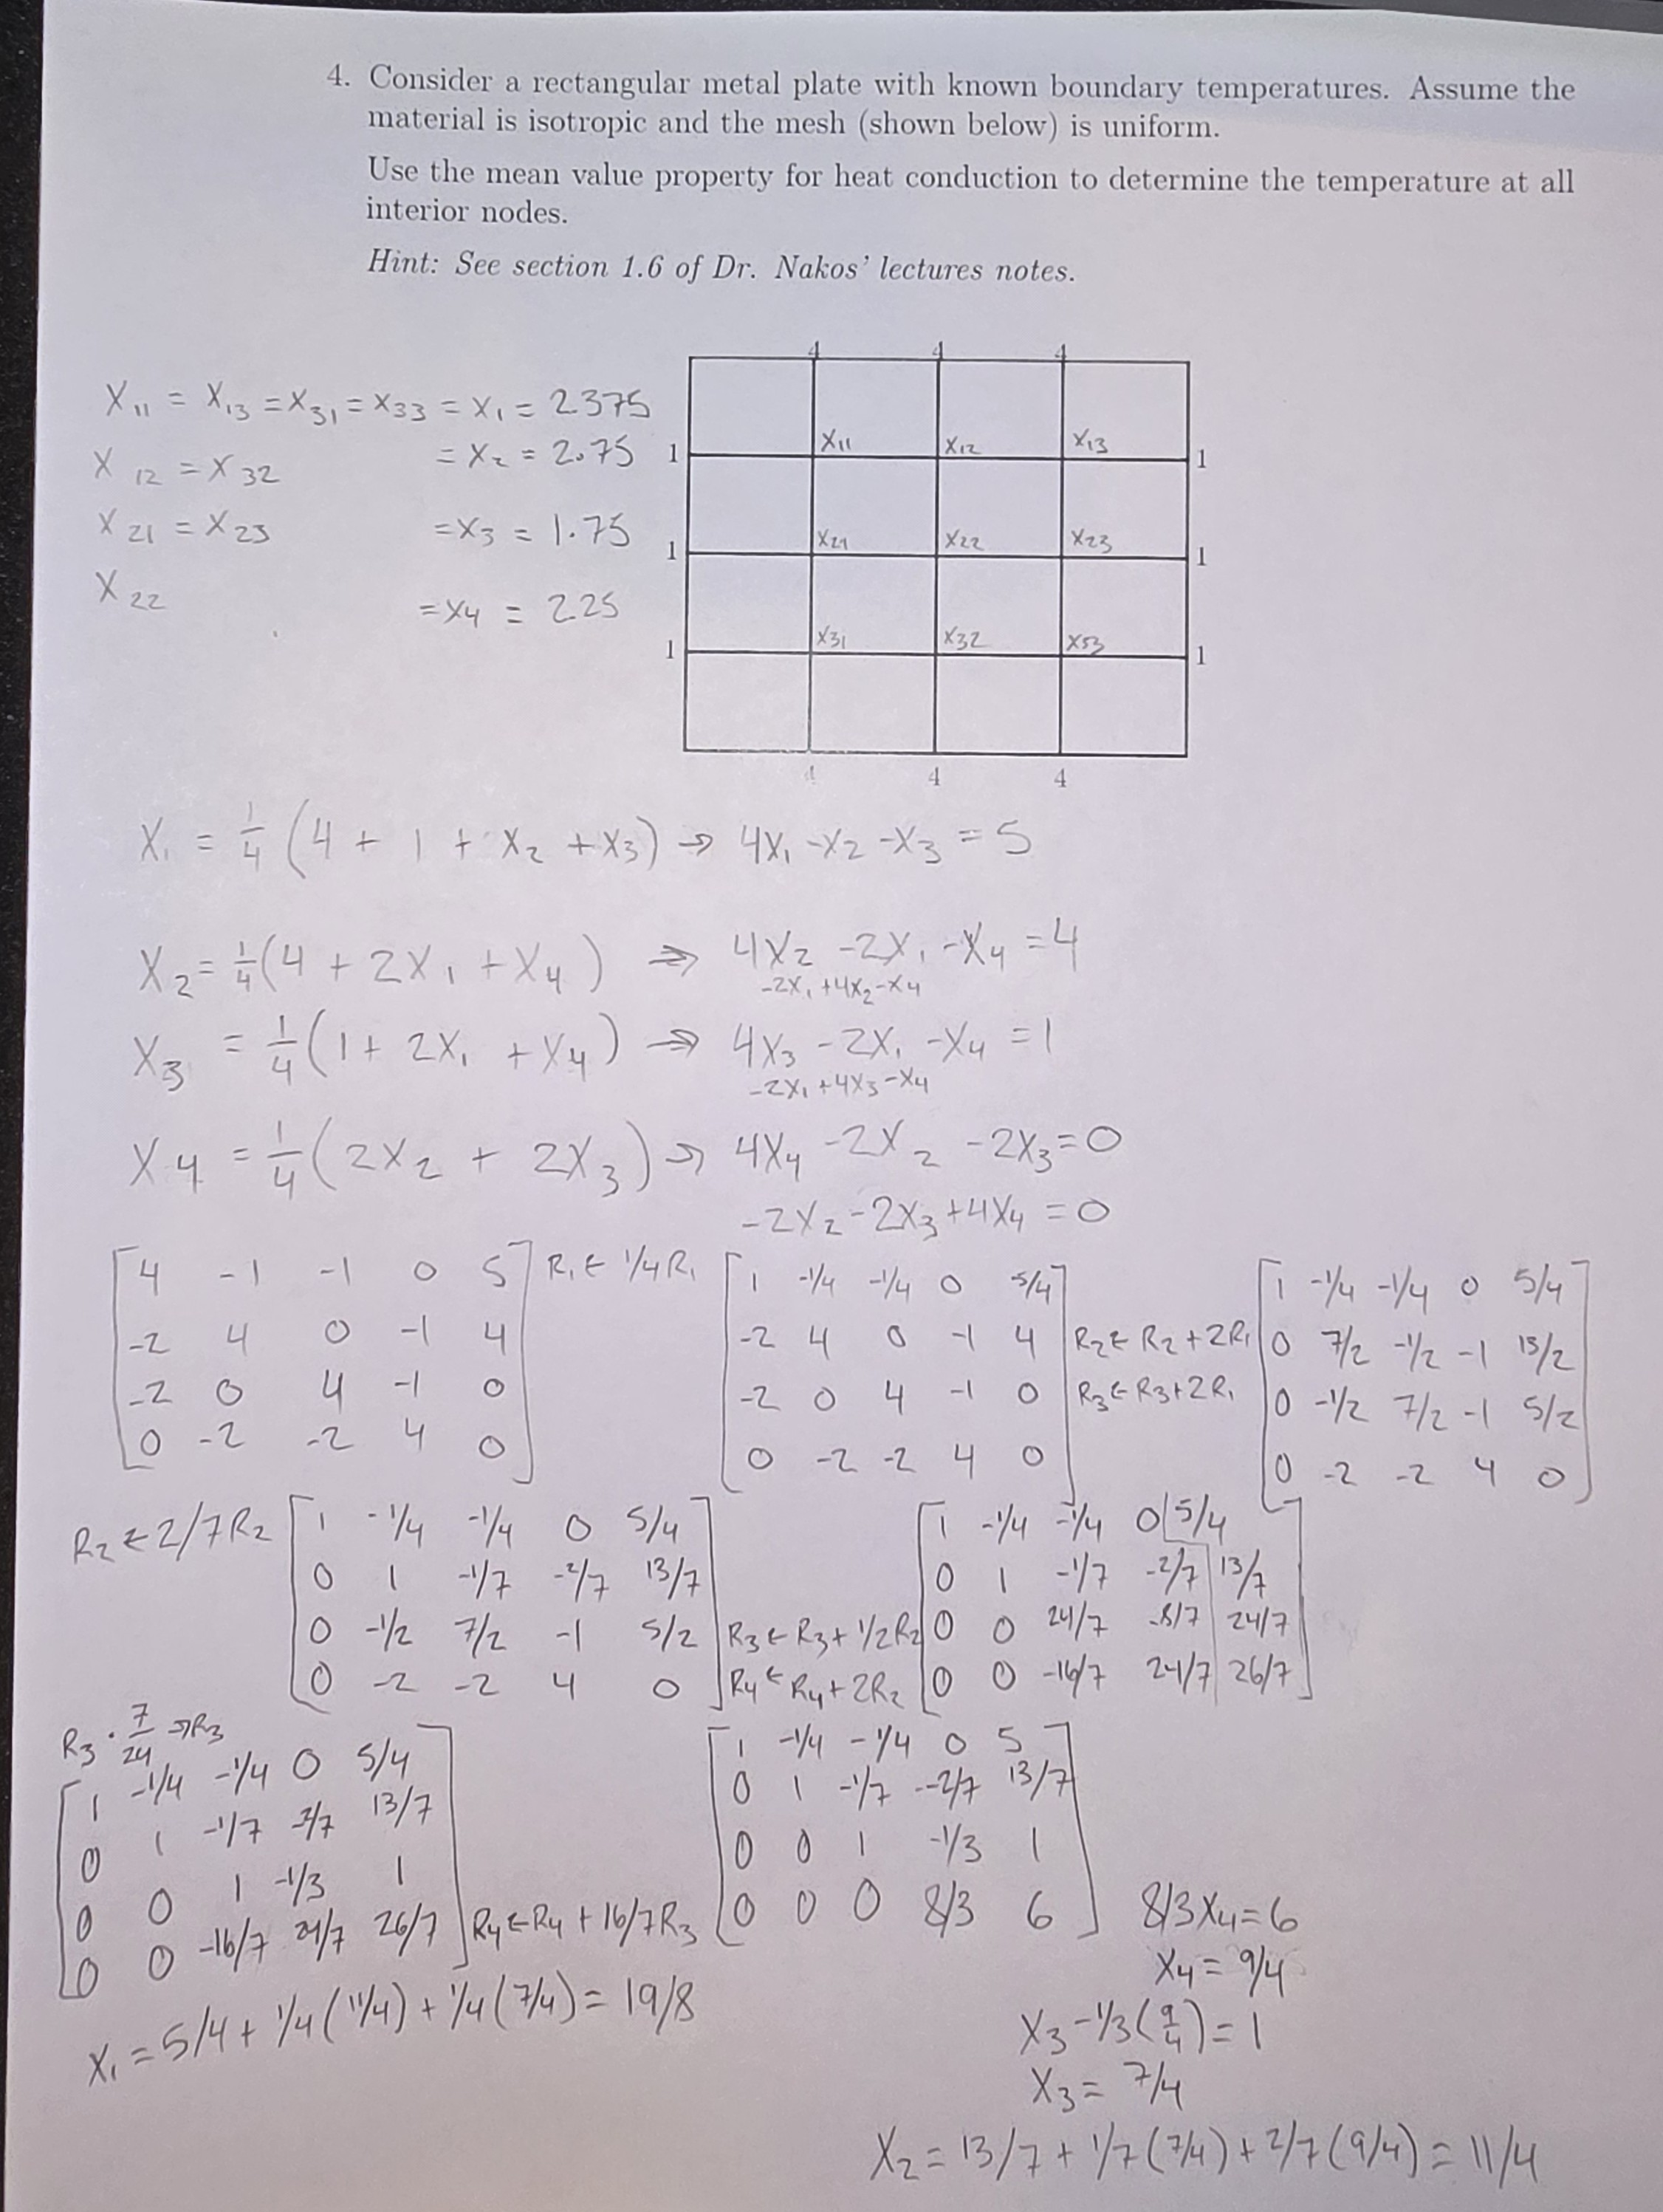 4. Consider a rectangular metal plate with known boundary temperatures. Assume the
material is isotropic and the mesh (shown below) is uniform.
Use the mean value property for heat conduction to determine the temperature at all
interior nodes.
Hint: See section 1.6 of Dr. Nakos' lectures notes.
4 4 4
X₁₁ = X₁₃ = X₃₁ = X₃₃ = X₁ = 2.375
X₁₂ = X₃₂ = X₂ = 2.75
X₂₁ = X₂₃ = X₃ = 1.75
X₂₂ = X₄ = 2.25
X₁₁ X₁₂ X₁₃
1 1
X₂₁ X₂₂ X₂₃
1 1
X₃₁ X₃₂ X₃₃
1 1
4 4 4
X₁ = 1/4 (4 + 1 + X₂ + X₃) → 4X₁ - X₂ - X₃ = 5
X₂ = 1/4 (4 + 2X₁ + X₄) ⇒ 4X₂ - 2X₁ - X₄ = 4
-2X₁ + 4X₂ - X₄
X₃ = 1/4 (1 + 2X₁ + X₄) ⇒ 4X₃ - 2X₁ - X₄ = 1
-2X₁ + 4X₃ - X₄
X₄ = 1/4 (2X₂ + 2X₃) → 4X₄ - 2X₂ - 2X₃ = 0
-2X₂ - 2X₃ + 4X₄ = 0
4 -1 -1 0 5
-2 4 0 -1 4
-2 0 4 -1 0
0 -2 -2 4 0
R₁ ← 1/4 R₁
1 -1/4 -1/4 0 5/4
-2 4 0 -1 4
-2 0 4 -1 0
0 -2 -2 4 0
R₂ ← R₂ + 2R₁
R₃ ← R₃ + 2R₁
1 -1/4 -1/4 0 5/4
0 7/2 -1/2 -1 13/2
0 -1/2 7/2 -1 5/2
0 -2 -2 4 0
R₂ ← 2/7 R₂
1 -1/4 -1/4 0 5/4
0 1 -1/7 -2/7 13/7
0 -1/2 7/2 -1 5/2
0 -2 -2 4 0
R₃ ← R₃ + 1/2 R₂
R₄ ← R₄ + 2R₂
1 -1/4 -1/4 0 5/4
0 1 -1/7 -2/7 13/7
0 0 24/7 -8/7 24/7
0 0 -16/7 24/7 26/7
R₃ · 7/24 → R₃
1 -1/4 -1/4 0 5/4
0 1 -1/7 -2/7 13/7
0 0 1 -1/3 1
0 0 -16/7 24/7 26/7
R₄ ← R₄ + 16/7 R₃
1 -1/4 -1/4 0 5
0 1 -1/7 -2/7 13/7
0 0 1 -1/3 1
0 0 0 8/3 6
8/3 X₄ = 6
X₄ = 9/4
X₃ - 1/3 (9/4) = 1
X₃ = 7/4
X₂ = 13/7 + 1/7 (7/4) + 2/7 (9/4) = 11/4
X₁ = 5/4 + 1/4 (11/4) + 1/4 (7/4) = 19/8